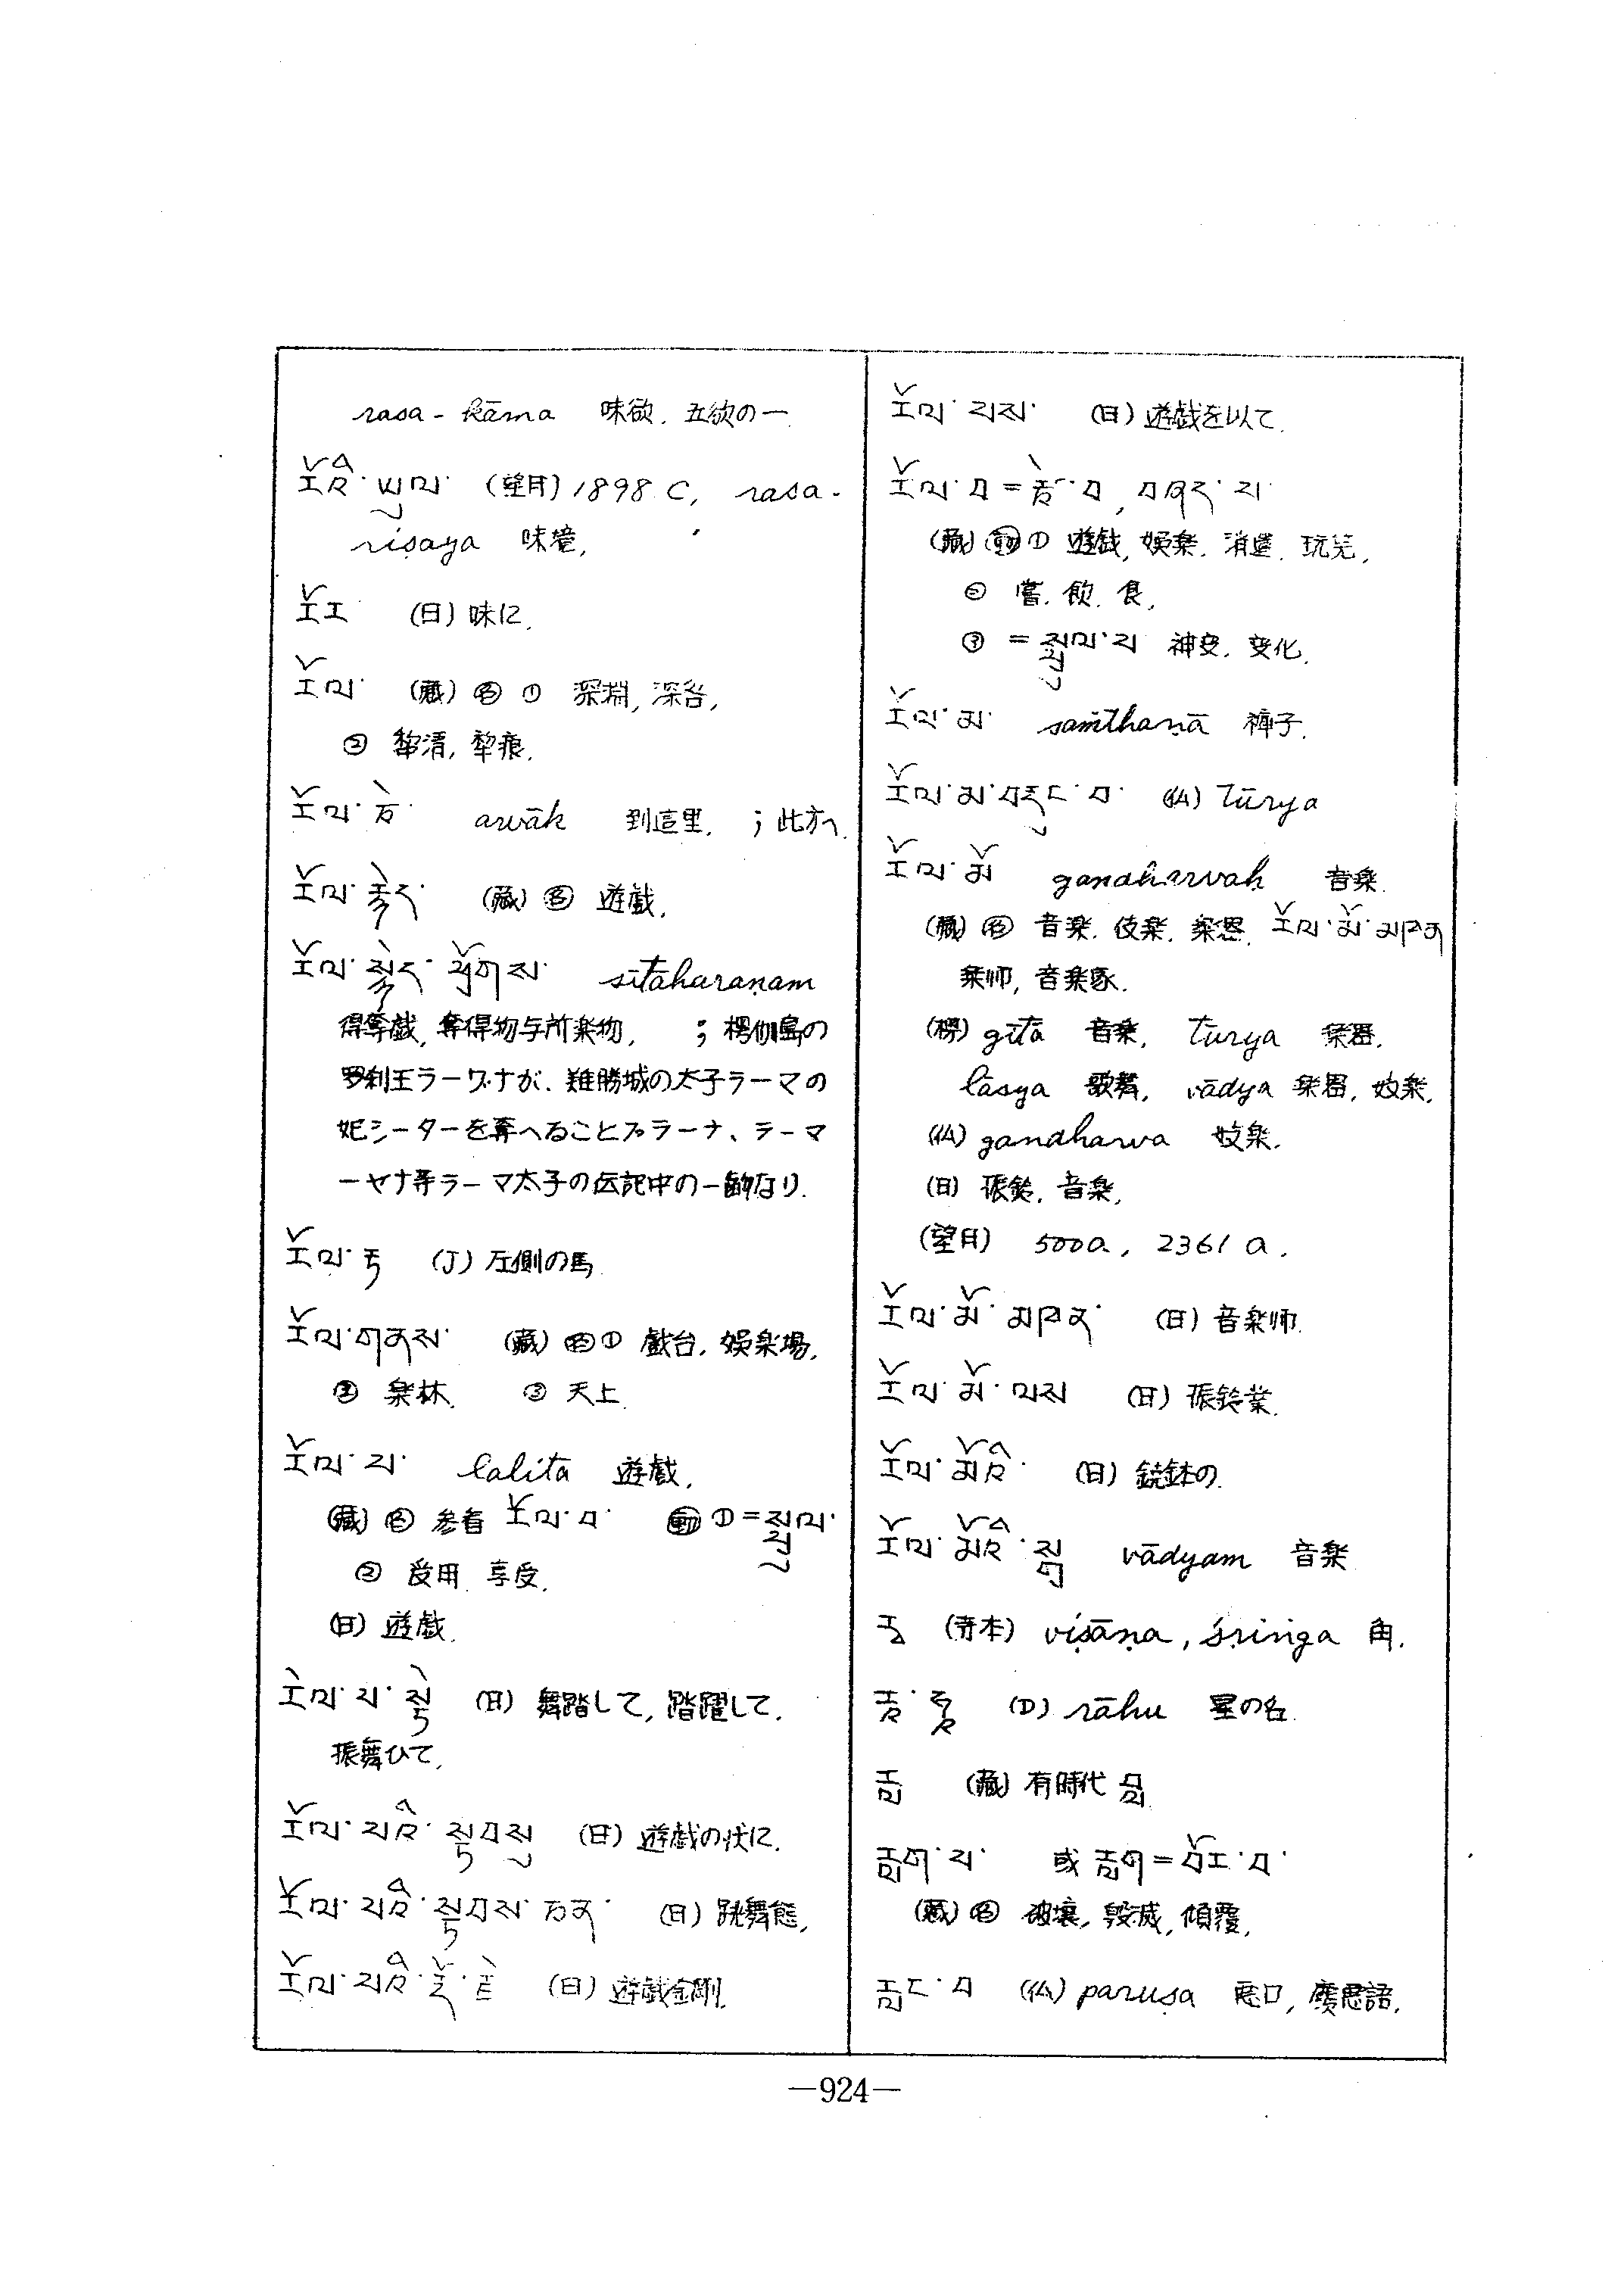 rasa - kāma 味欲. 五欲の一
རོའི་ཡུལ་ (望月) 1898 C, rasa -
viṣaya 味境,
རོར (日) 味に.
རོལ་ (蔵) 名 ① 深淵, 深谷,
② 犂溝, 犂痕.
རོལ་ཏེ་ awāk 到這里. ; 此方へ.
རོལ་རྩེད་ (蔵) 名 遊戯.
རོལ་རྩེད་ sītāharaṇam
得奪戯, 奪得物与所楽物, ; 楞伽島の
罗刹王ラーワ゛ナが、難勝城の太子ラーマの
妃シーターを奪へることプラーナ、ラーマ
ーヤナ等ラーマ太子の伝記中の一齣なり.
རོལ་རྟ (J) 左側の馬
རོལ་གནས་ (蔵) 名① 戯台, 娯楽場,
② 楽林. ③ 天上.
རོལ་པ་ lalita 遊戯.
(蔵) 名 参看 རོལ་བ་ 動 ① =
② 受用. 享受.
(日) 遊戯.
རོལ་པ་སྟེ (日) 舞踏して, 踏躍して.
振舞ひて.
རོལ་པའི་སྟབསུ (日) 遊戯の状に.
རོལ་པའི་སྟབས་ཅན་ (日) 跳舞態,
རོལ་པའི་རྡོ་རྗེ (日) 遊戯金剛.
རོལ་པས་ (日) 遊戯を以て.
རོལ་བ = , བཤད་པ་
(蔵) 動 ① 遊戯, 娯楽. 消遣. 玩笑,
② 嘗. 飲. 食,
③ = སྤྲུལ་པ 神変. 変化.
རོལ་མ་ saṁthaṇā 褲子.
རོལ་མ་བརྡུང་བ་ (仏) tūrya
རོལ་མོ gandharvah 音楽.
(蔵) 名 音楽. 伎楽. 楽器. རོལ་མོ་མཁན
楽师, 音楽家.
(楞) gīta 音楽, tūrya 楽器.
lāsya 歌舞, vādya 楽器, 妓楽.
(仏) gandharva 妓楽.
(日) 振鈴, 音楽.
(望月) 500a, 2361 a.
རོལ་མོ་མཁན་ (日) 音楽师.
རོལ་མོ་ལས (日) 振鈴業.
རོལ་མོའི་ (日) 鐃鉢の.
རོལ་མོའི་སྒྲ vādyam 音楽
རྭ (寺本) viṣāṇa, śriṅga 角.
(D) rāhu 星の名.
རླ (蔵) 有時代 བླ
རླག་པ་ 或 རླག = བོར་བ་
(蔵) 名 破壊, 毀滅, 傾覆,
རླང་བ (仏) paruṣa 悪口, 麁悪語.
—924—